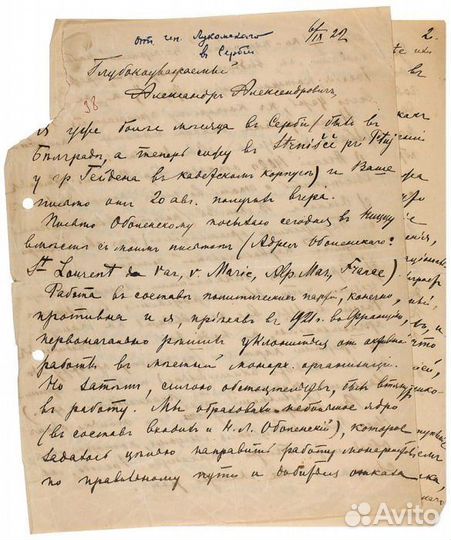 отъ ген. Лукомскаго
въ Сербіи
6/IX 22
2.
Глубокоуважаемый
Александръ Александровичъ,
98
Я уже больше мѣсяца въ Сербіи (былъ въ
Бѣлградѣ, а теперь сижу въ Stenišče pri Ptuj
у гр. Гейдена въ кадетскомъ корпусѣ) и Ваше
письмо отъ 20 авг. получилъ вчера.
Письмо Оболенскому посылаю сегодня въ Ниццу
вмѣстѣ съ моимъ письмомъ (Адресъ Оболенскаго:
St Laurent du Var, v. Marie, Alp. Mar., France)
Работа въ составѣ политическихъ партій, конечно,
противна и я, пріѣхавъ въ 1921 г. во Францію,
первоначально рѣшилъ уклониться отъ
работы въ мѣстной монарх. организаціи.
Но затѣмъ, силою обстоятельствъ, былъ втянутъ
въ работу. Мы образовали ядро
(въ составъ входилъ и Н. Л. Оболенскій), которое
задалось цѣлью направить работу монархистовъ
по правильному пути и добиться отказа
Avito